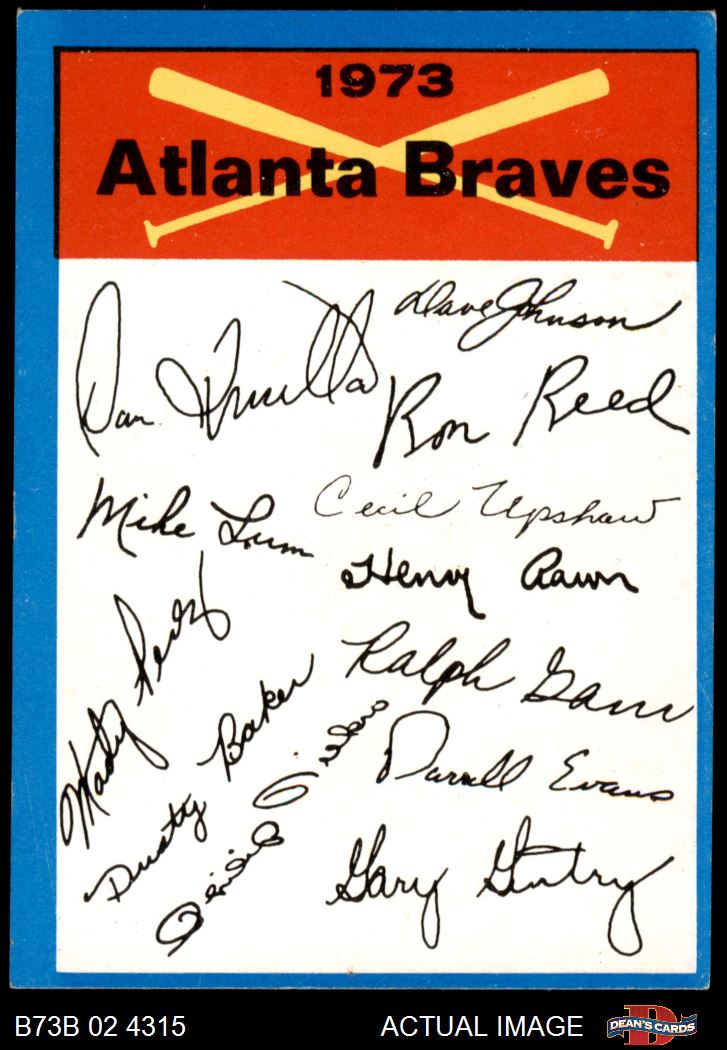 1973
Atlanta Braves
Dave Johnson
Dan Frisella
Ron Reed
Mike Lum
Cecil Upshaw
Henry Aaron
Marty Perez
Ralph Garr
Dusty Baker
Darrell Evans
Gary Gentry
B73B 02 4315
ACTUAL IMAGE
DEAN'S CARDS